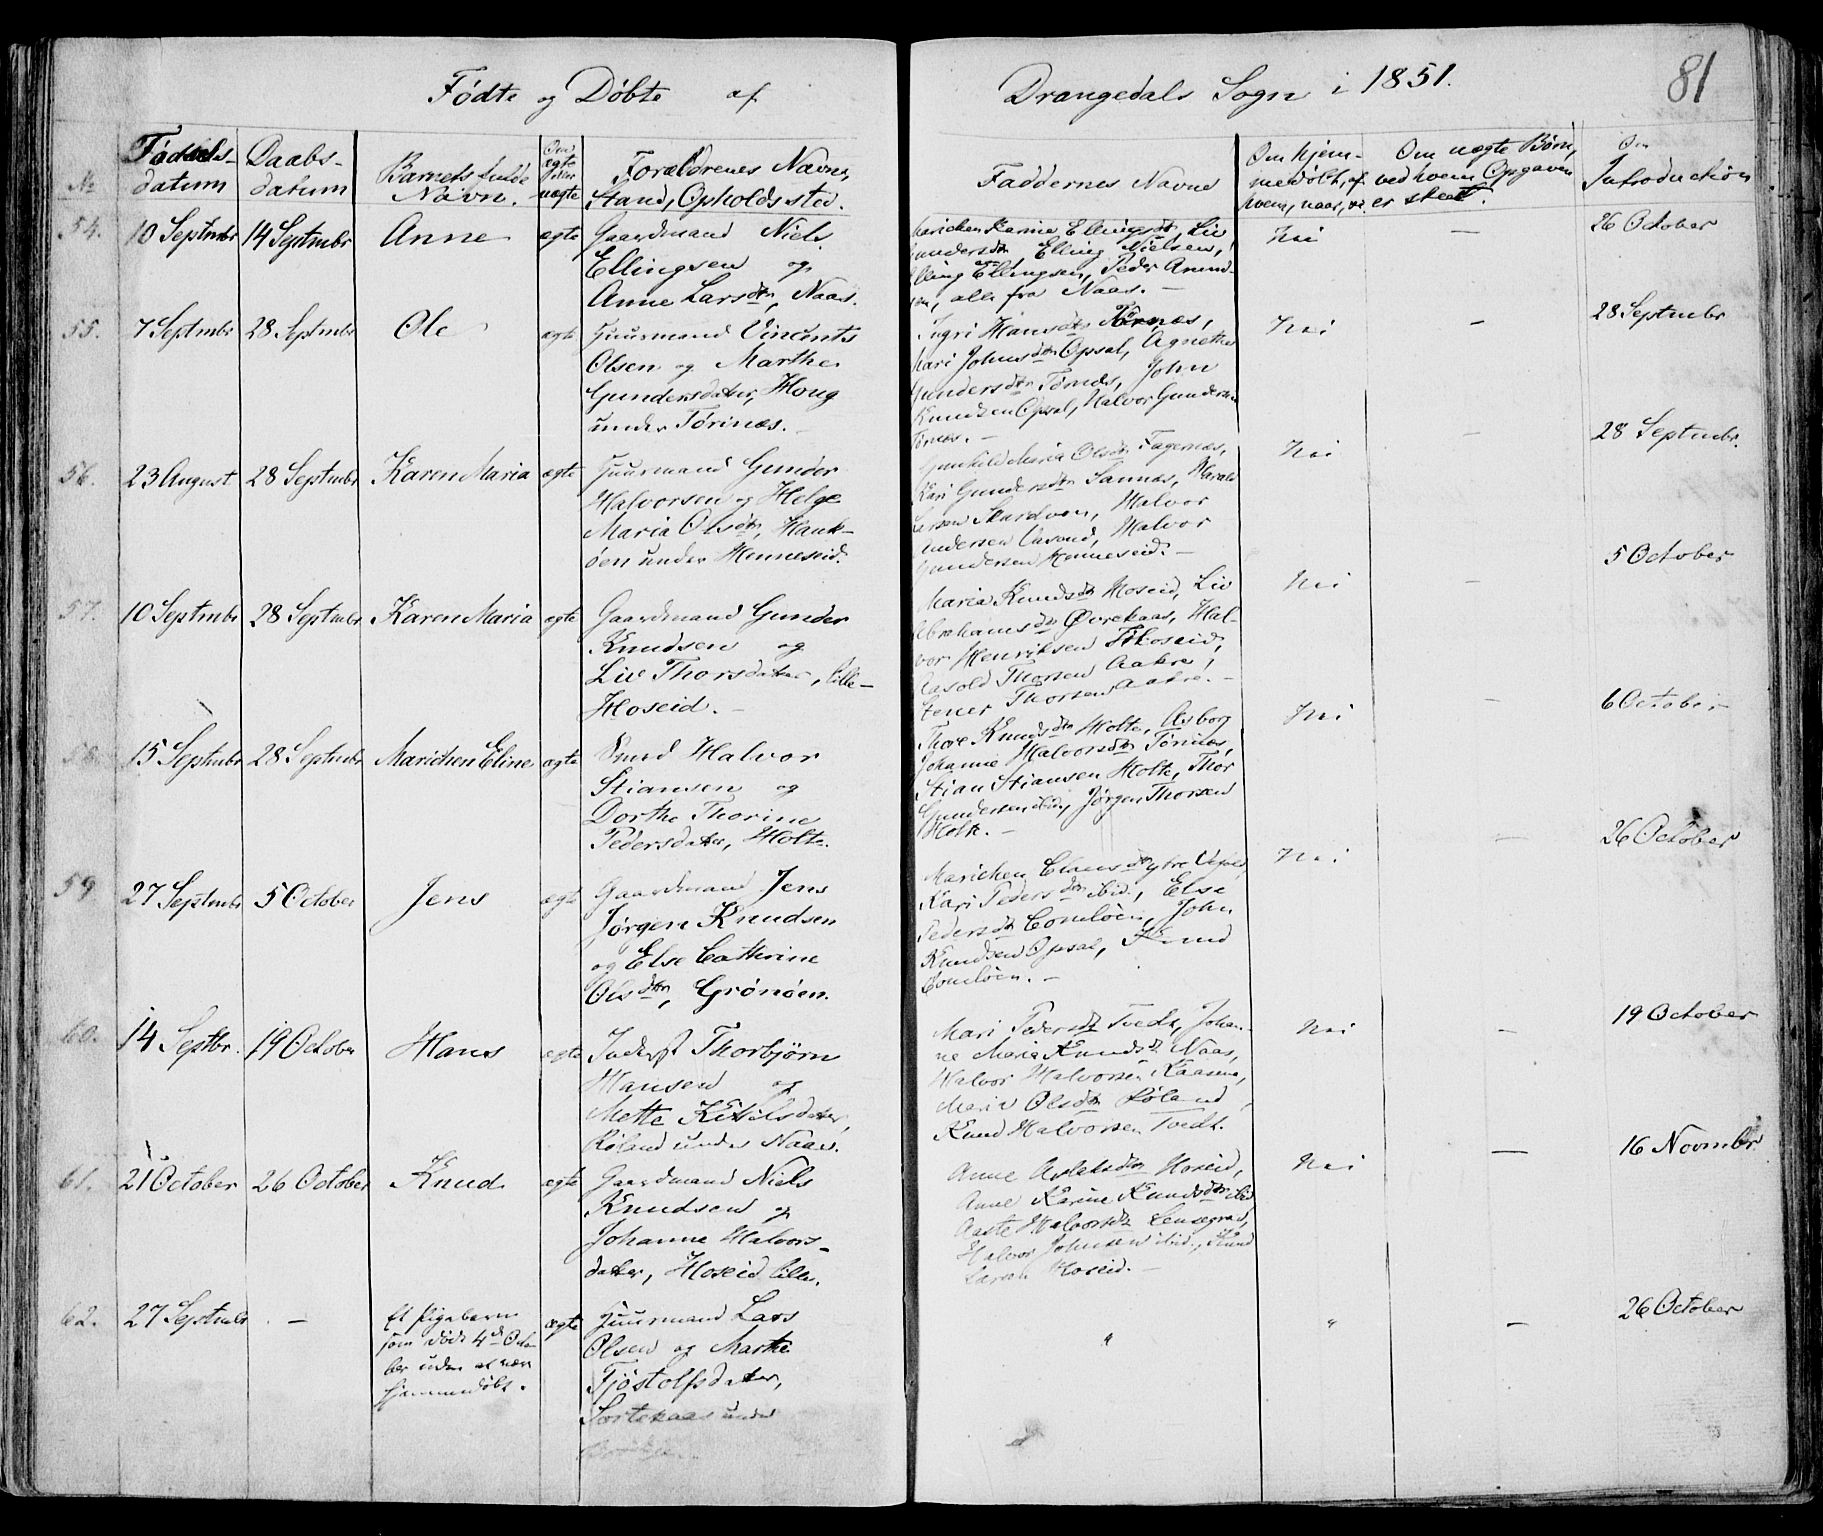 Fødte og Døbte af
Drangedals Sogn i 1851.
81
№
Fødsels-
datum
Daabs-
datum
Barnets fulde
Navn.
Om
ægte
eller
uægte
Forældrenes Navne,
Stand, Opholdssted.
Faddernes Navne
Om hjem-
medøbt, af
hvem, naar,
Om uægte Børn,
ved hvem Opgaven
er skeet.
Om
Introduction
54.
10 Septmbr
14 Septmbr
Anne
ægte
Gaardmand Niels
Ellingsen og
Anne Larsdtr, Naas.
Marichen Karine Ellingsdtr, Liv
Elling Nielsen,
Elling Ellingsen, Peder
alle fra Naas. —
Nei
—
26 October
55.
7 Septmbr
28 Septmbr
Ole
ægte
Huusmand Vincents
Olsen og Marthe
Gundersdater, Houg
under Törinæs.
Ingri Hansdtr
Mari Johnsdtr Opsal, Agnethe
Gundersdtr Törnæs, John
Knudsen Opsal, Halvor Gundersen
Törnæs. —
Nei
—
28 Septmbr
56.
23 August
28 Septmbr
Karen Maria
ægte
Huusmand Gunder
Halvorsen og Helge
Maria Olsdtr, Hauk-
öen under Henneseid.
Gunhild Maria Olsdtr Fagernæs,
Kari Gundersdtr Sannæs, Harald
Larsen Skardvon, Halvor
Andersen Halvor
Gundersen Henneseid. —
Nei
—
28 Septmbr
57.
10 Septmbr
28 Septmbr
Karen Maria
ægte
Gaardmand Gunder
Knudsen og
Liv Thorsdater, lille-
Hoseid. —
Maria Knudsdtr Hoseid, Liv
Abrahamsdtr Ourekaas, Hal-
vor Henriksen Hoseid,
Aasold Thorsen Aakre,
Stener Thorsen Aakre. —
Nei
—
5 October
58.
15 Septmbr
28 Septmbr
Marichen Eline
ægte
Smed Halvor
Stiansen og
Dorthe Thorine
Pedersdater, Holte.
Thore Knudsdtr Holte, Asborg
Johanne Halvorsdtr Törinæs,
Stian Stiansen Holte, Thor
Gundersen ibid, Jørgen Thorsen
Holte. —
Nei
—
6 October
59
27 Septmbr
5 October
Jens
ægte
Gaardmand Jens
Jørgen Knudsen
og Else Cathrine
Olsdtr, Grönöen.
Marichen Clausdtr ytre
Kari Pedersdtr ibid., Else
Pedersdtr John
Knudsen Opsal, Knud
Nei
—
26 October
60.
14 Septbr.
19 October
Hans
ægte
Inderst Thorbjørn
Hansen og
Mette Kittilsdater,
Röland under Naas.
Mari Pedersdtr Tvedt, Johan-
ne Maria Knudsdtr Naas,
Halvor Halvorsen Kaasene,
Maria Olsdtr Röland,
Knud Halvorsen Tvedt.
Nei
—
19 October
61.
21 October
26 October
Knud
ægte
Gaardmand Niels
Knudsen og
Johanne Halvors-
dater, Hoseid lille.
Anne Aslaksdtr Hoseid,
Anne Karine Knudsdtr ibid
Aaste Halvorsdtr Lensegrav,
Halvor Johnsen ibid., Knud
Larsen Hoseid. —
Nei
—
16 Novmbr.
62.
27 Septmbr
—
Et Pigebarn
som døde 4de Octo-
ber uden at være
hjemmedøbt.
ægte
Huusmand Lars
Olsen og Marthe
Tjöstolfsdater,
Sortekaas under
"
"
—
26 October